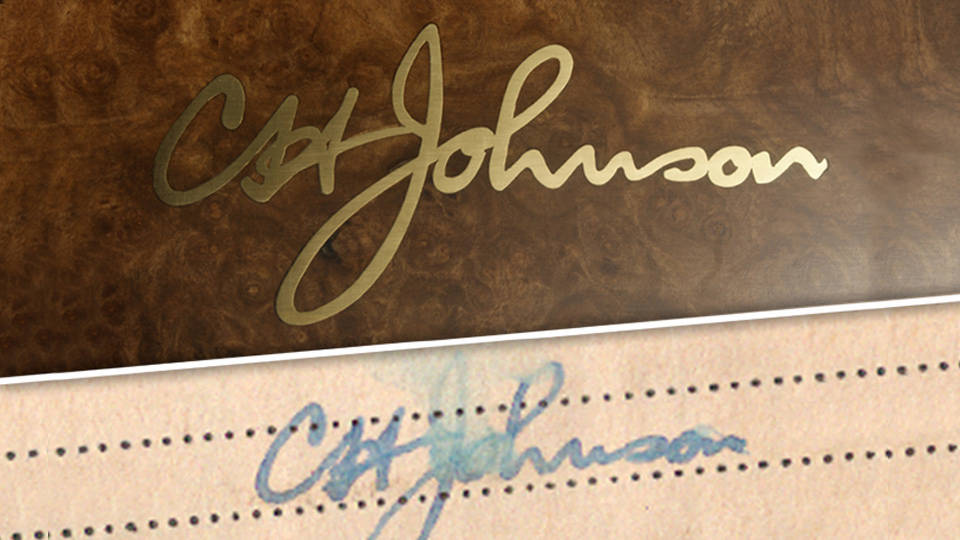 CH Johnson
CH Johnson